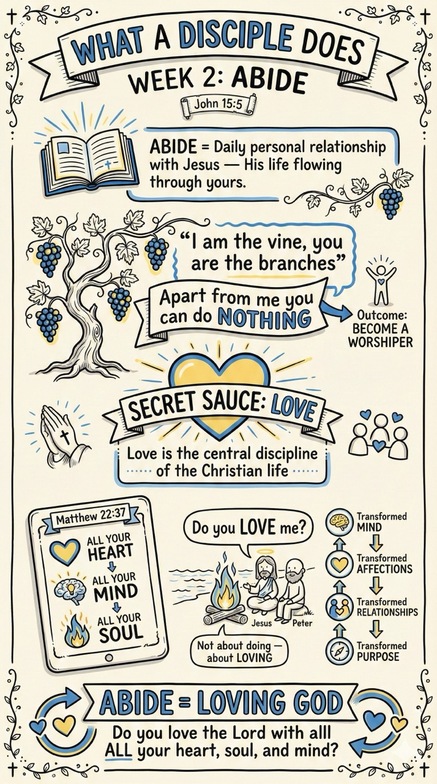 WHAT A DISCIPLE DOES
WEEK 2: ABIDE
John 15:5
ABIDE = Daily personal relationship
with Jesus — His life flowing
through yours.
“I am the vine, you
are the branches”
Apart from me you
can do NOTHING
Outcome:
BECOME A
WORSHIPER
SECRET SAUCE: LOVE
Love is the central discipline
of the Christian life
Matthew 22:37
ALL YOUR
HEART
ALL YOUR
MIND
ALL YOUR
SOUL
Do you LOVE me?
Jesus
Peter
Not about doing –
about LOVING
Transformed
MIND
Transformed
AFFECTIONS
Transformed
RELATIONSHIPS
Transformed
PURPOSE
ABIDE = LOVING GOD
Do you love the Lord with alll
ALL your heart, soul, and mind?